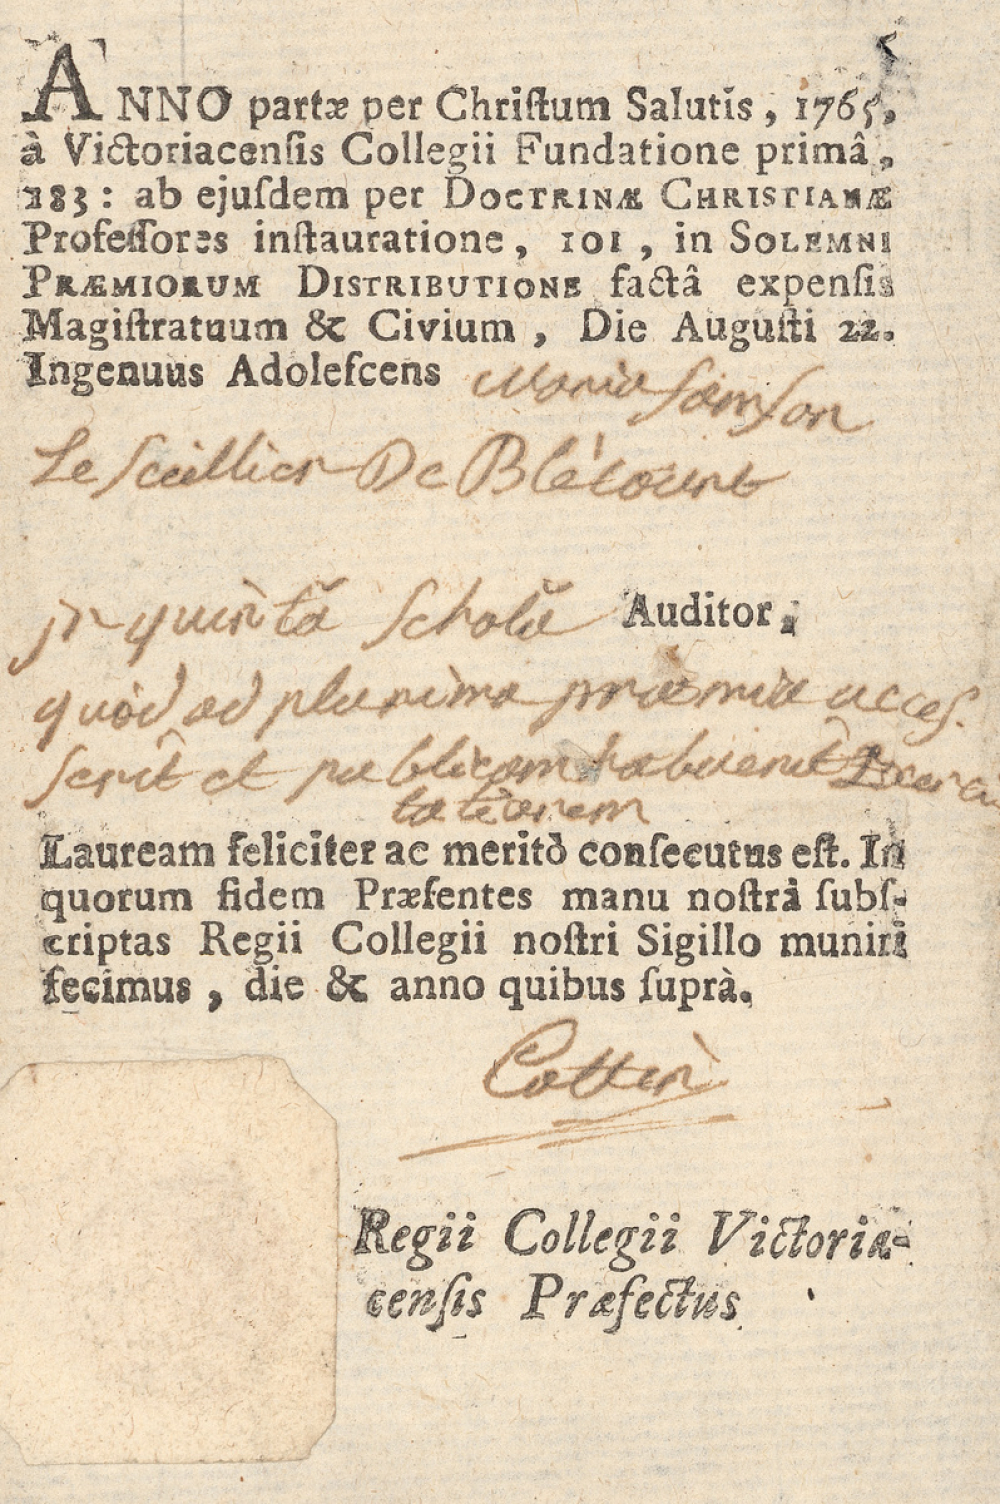 ANNO partæ per Chriſtum Salutis, 1765,
à Victoriacenſis Collegii Fundatione primâ,
183: ab ejuſdem per DOCTRINÆ CHRISTIANÆ
Profeſſores inſtauratione, 101, in SOLEMNI
PRÆMIORUM DISTRIBUTIONE factâ expenſis
Magiſtratuum & Civium, Die Auguſti 22.
Ingenuus Adoleſcens Maria Samſon
Le Scellier De Blécourt
in quintâ Scholâ Auditor,
quòd ad plurima præmia acceſ-
ſerit et publicam habuerit
tationem
Lauream feliciter ac meritò conſecutus eſt. In
quorum fidem Præſentes manu noſtrâ ſubſ-
criptas Regii Collegii noſtri Sigillo muniri
fecimus, die & anno quibus ſuprà.
Cottin
Regii Collegii Victoria-
cenſis Præfectus